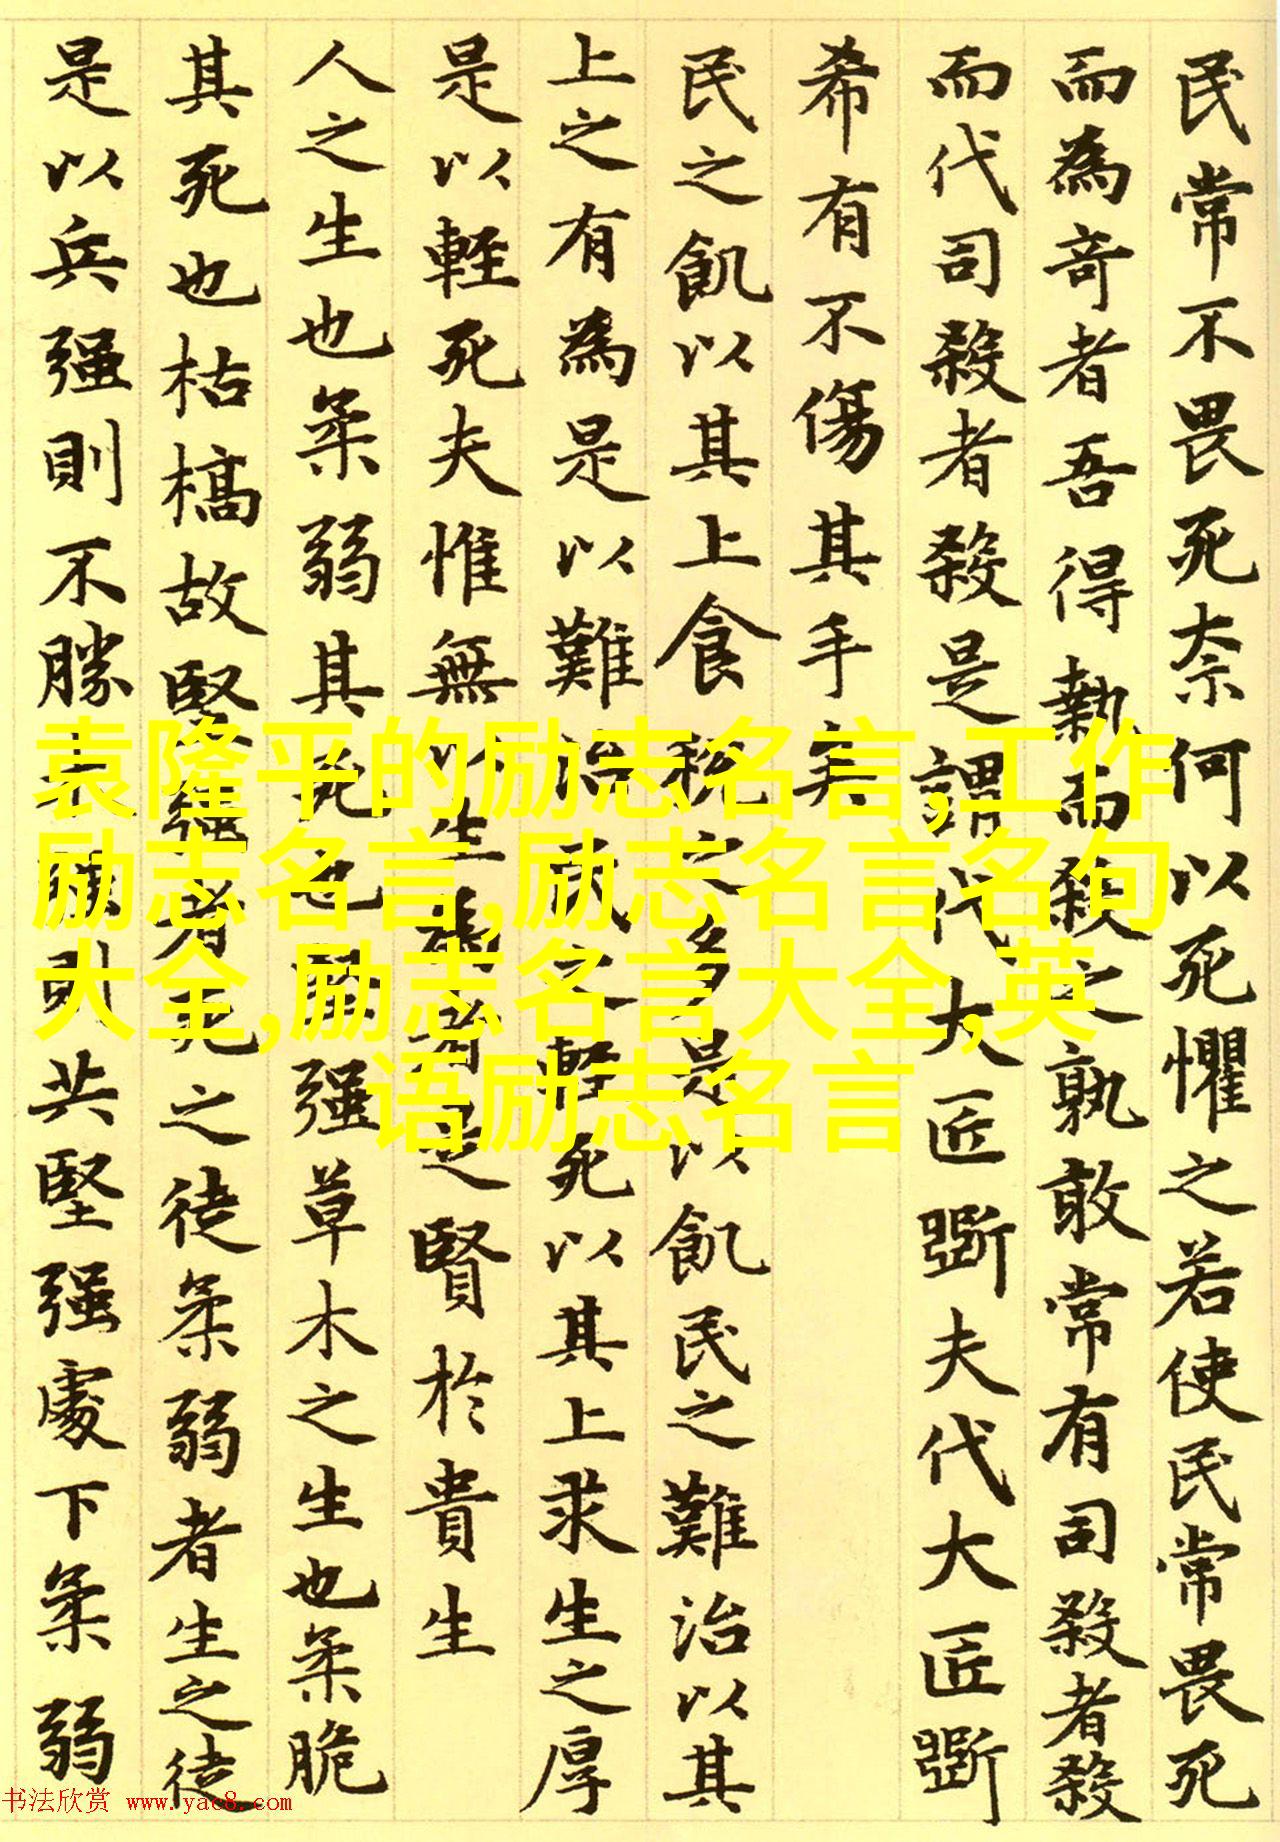 民常不畏死奈何以死懼之若使民常畏死
而為奇者吾得執而殺之孰敢常有司殺者殺
而代司殺者殺是謂代大匠斲夫代大匠斲
希有不傷其手矣
民之飢以其上食稅之多是以飢民之難治以其
上之有為是以難治民之輕死以其上求生之厚
是以輕死夫惟無以生為者是賢於貴生
人之生也柔弱其死也堅强草木之生也柔脆
其死也枯槁故堅强者死之徒柔弱者生之徒
是以兵强則不勝木强則共堅强處下柔弱
袁隆平的励志名言,工作
励志名言,励志名言名句
大全,励志名言大全,英
语励志名言
书法欣赏 www.yac8.com